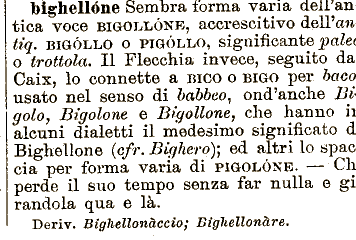 bighellóne Sembra forma varia dell'an
tica voce BIGOLLÓNE, accrescitivo dell'an
tiq. BIGÓLLO o PIGÓLLO, significante paleo
o trottola. Il Flecchia invece, seguito da
Caix, lo connette a BICO o BIGO per baco
usato nel senso di babbeo, ond'anche Bi-
golo, Bigolone e Bigollone, che hanno in
alcuni dialetti il medesimo significato d
Bighellone (cfr. Bighero); ed altri lo spac
cia per forma varia di PIGOLÓNE. — Ch
perde il suo tempo senza far nulla e gi
randola qua e là.
Deriv. Bighellonàccio; Bighellonàre.